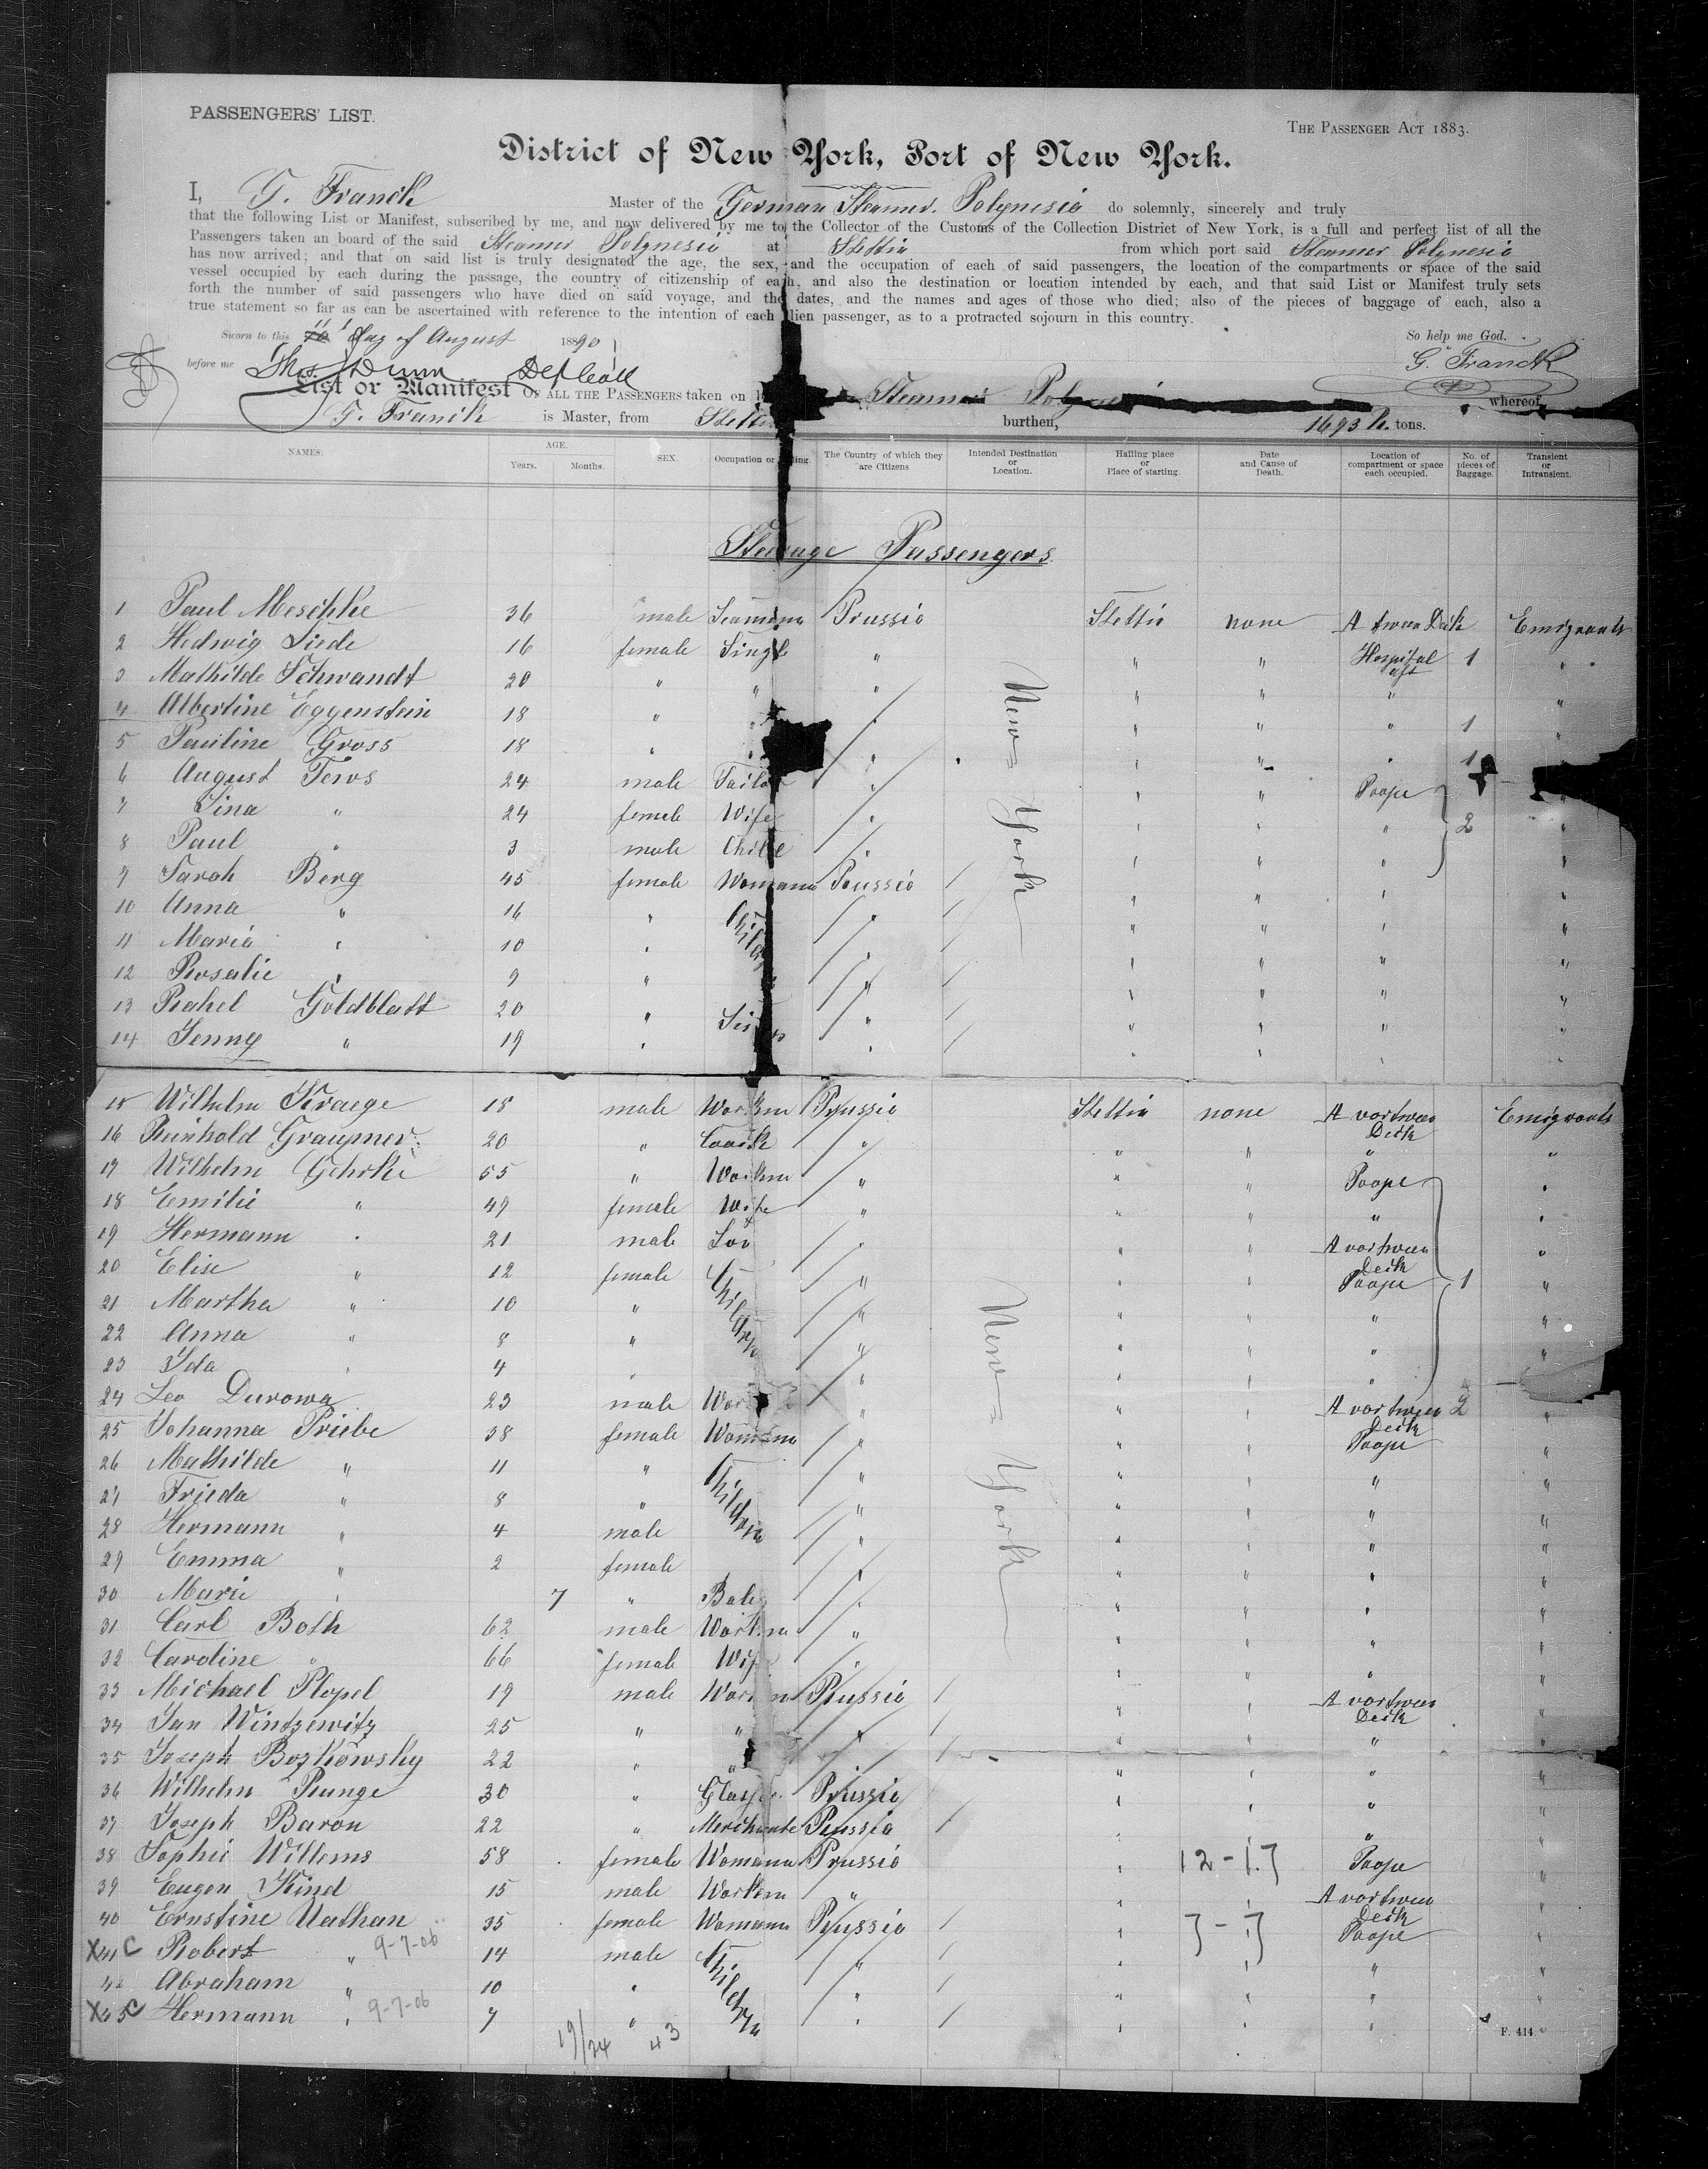 PASSENGERS' LIST.
THE PASSENGER ACT 1883.
District of New York, Port of New York.
I, G. Franck Master of the German Steamer Polynesia do solemnly, sincerely and truly
that the following List or Manifest, subscribed by me, and now delivered by me to the Collector of the Customs of the Collection District of New York, is a full and perfect list of all the
Passengers taken an board of the said Steamer Polynesia at Stettin from which port said Steamer Polynesia
has now arrived; and that on said list is truly designated the age, the sex, and the occupation of each of said passengers, the location of the compartments or space of the said
vessel occupied by each during the passage, the country of citizenship of each, and also the destination or location intended by each, and that said List or Manifest truly sets
forth the number of said passengers who have died on said voyage, and the dates, and the names and ages of those who died; also of the pieces of baggage of each, also a
true statement so far as can be ascertained with reference to the intention of each alien passenger, as to a protracted sojourn in this country.
Sworn to this 11 day of August 1890
So help me God.
before me Thos Dunn
G. Franck
List or Manifest OF ALL THE PASSENGERS taken on Steamer whereof
G. Franck is Master, from Stettin burthen, 1693 tons.
NAMES. AGE. Years. Months. SEX. Occupation or Calling. The Country of which they are Citizens Intended Destination or Location. Hailing place or Place of starting. Date and Cause of Death. Location of compartment or space each occupied. No. of pieces of Baggage. Transient or Intransient.
Steerage Passengers
1 Paul Meschke 36 male Seamann Prussia Stettin none A tween Deck Emigrants
2 Hedwig Liede 16 female Single " " " Hospital aft 1 "
3 Mathilde Schwandt 20 " " " " " " "
4 Albertine Eggenstein 18 " " " " " " 1 "
5 Pauline Gross 18 " " " " " " 1
6 August Tews 24 male Tailor " " " Poope "
7 Lina " 24 female Wife " " " " 2 "
8 Paul " 3 male Child " " " " "
9 Sarah Berg 45 female Womann Russia " " " "
10 Anna " 16 " Children " " " " "
11 Maria " 10 " " " " " "
12 Rosalie " 9 " " " " " "
13 Rahel Goldblatt 20 " Sisters " " " " "
14 Jenny " 19 " " " " " "
New York
15 Wilhelm Kraege 18 male Workm Prussia Stettin none A vortween Deck Emigrants
16 Reinhold Graupner 20 " " " " " "
17 Wilhelm Gehrke 55 " Workm " " " Poope "
18 Emilie " 49 female Wife " " " " "
19 Hermann " 21 male Son " " " A vortween Deck "
20 Elise " 12 female Children " " " Poope 1 "
21 Martha " 10 " " " " " "
22 Anna " 8 " " " " " "
23 Ida " 4 " " " " " "
24 Leo Durowa 23 male " " " A vortween Deck 2 "
25 Johanna Priebe 38 female Womann " " " Poope "
26 Mathilde " 11 " Children " " " " "
27 Frieda " 8 " " " " " "
28 Hermann " 4 male " " " " "
29 Emma " 2 female " " " " "
30 Marie " 7 " Baby " " " " "
31 Carl Both 62 male Workm " " " " "
32 Caroline " 66 female Wife " " " " "
33 Michael Plopel 19 male Workm Russia " " A vortween Deck "
34 Jan Wintzewitz 25 " " " " " " "
35 Joseph Bozkowsky 22 " " " " " " "
36 Wilhelm Runge 30 " Prussia " " " "
37 Joseph Baron 22 " Merchante Russia " " "
38 Sophie Willems 58 female Womann Prussia " 12-17 Poope "
39 Eugen Kind 15 male Workm " " " A vortween Deck "
40 Ernstine Nathan 35 female Womann Russia " 7-17 Poope "
X41 C Robert " 9-7-06 14 male Children " " " " "
42 Abraham " 10 " " " " " "
X43 C Hermann " 9-7-06 7 " " " " " "
New York
19/24 43
F. 414.